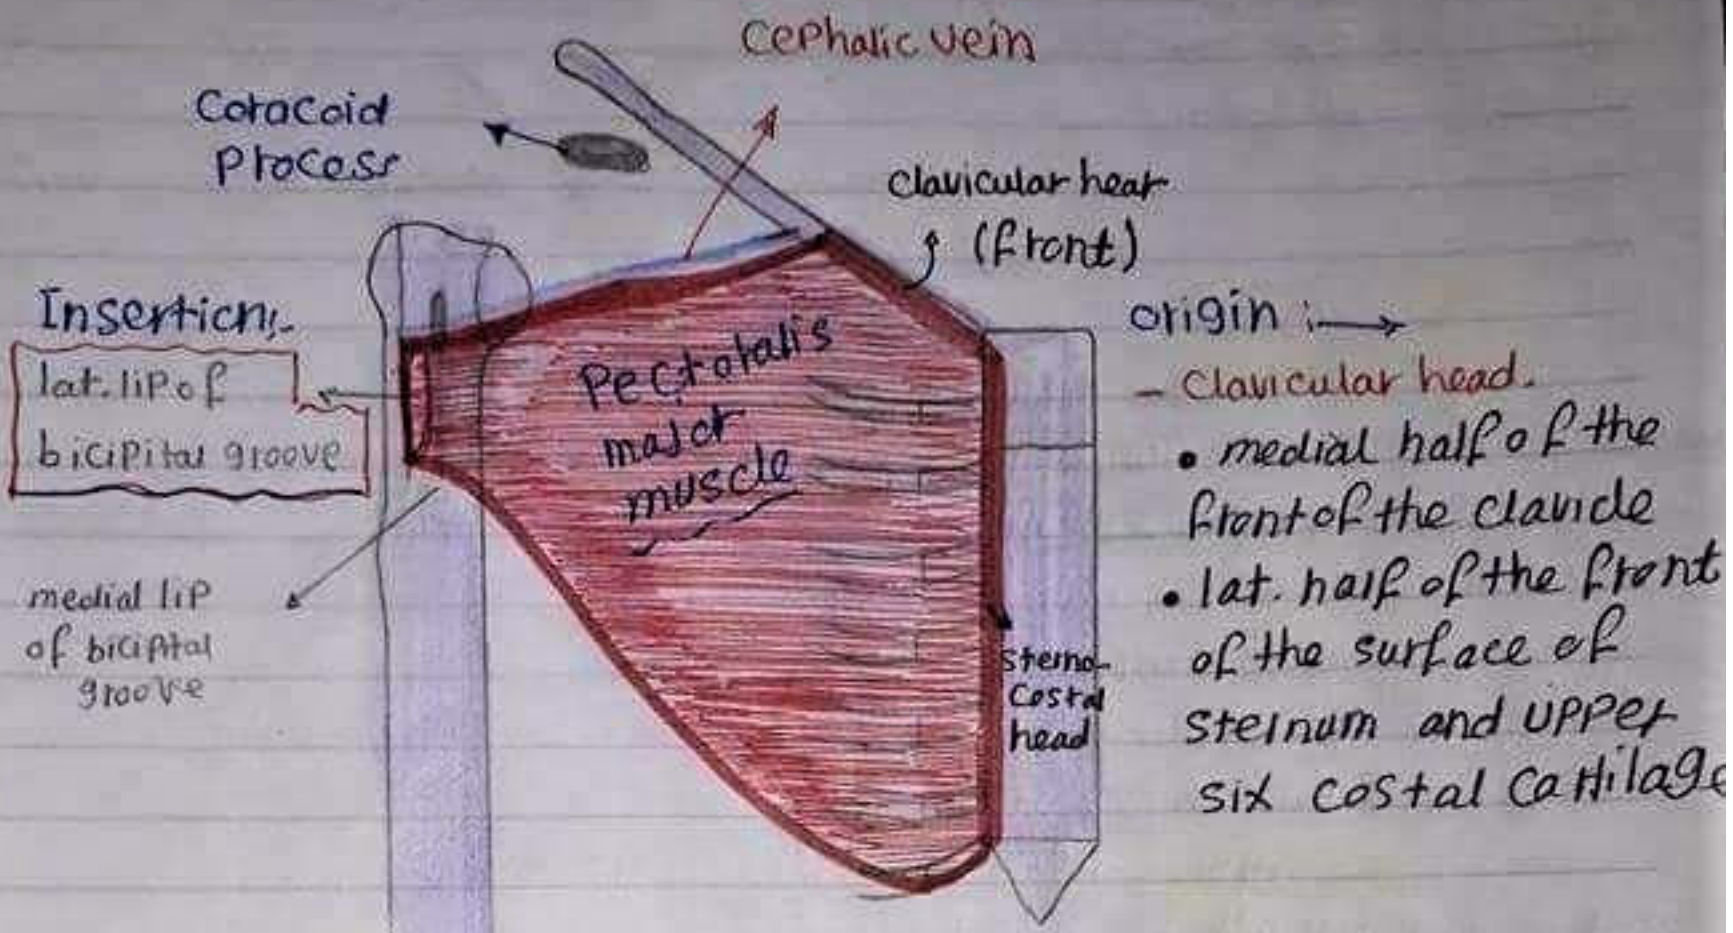 Cephalic vein
Coracoid
Process
clavicular hear
(front)
Insertion:-
lat. lip of
bicipital groove
Pectoralis
major
muscle
medial lip
of bicipital
groove
sterno-
costal
head
origin :
- Clavicular head.
• medial half of the
front of the clavicle
• lat. half of the front
of the surface of
sternum and upper
six costal cartilage